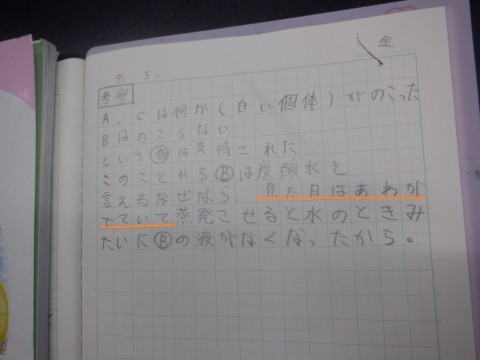 考察
A、Cは何か(白い個体)がのこった
Bはのこらない
という仮は支持された
このことからⒷは炭酸水と
言えるなぜなら、見た目はあわが
でていて蒸発させると水のときみ
たいにⒷの液がなくなったから。